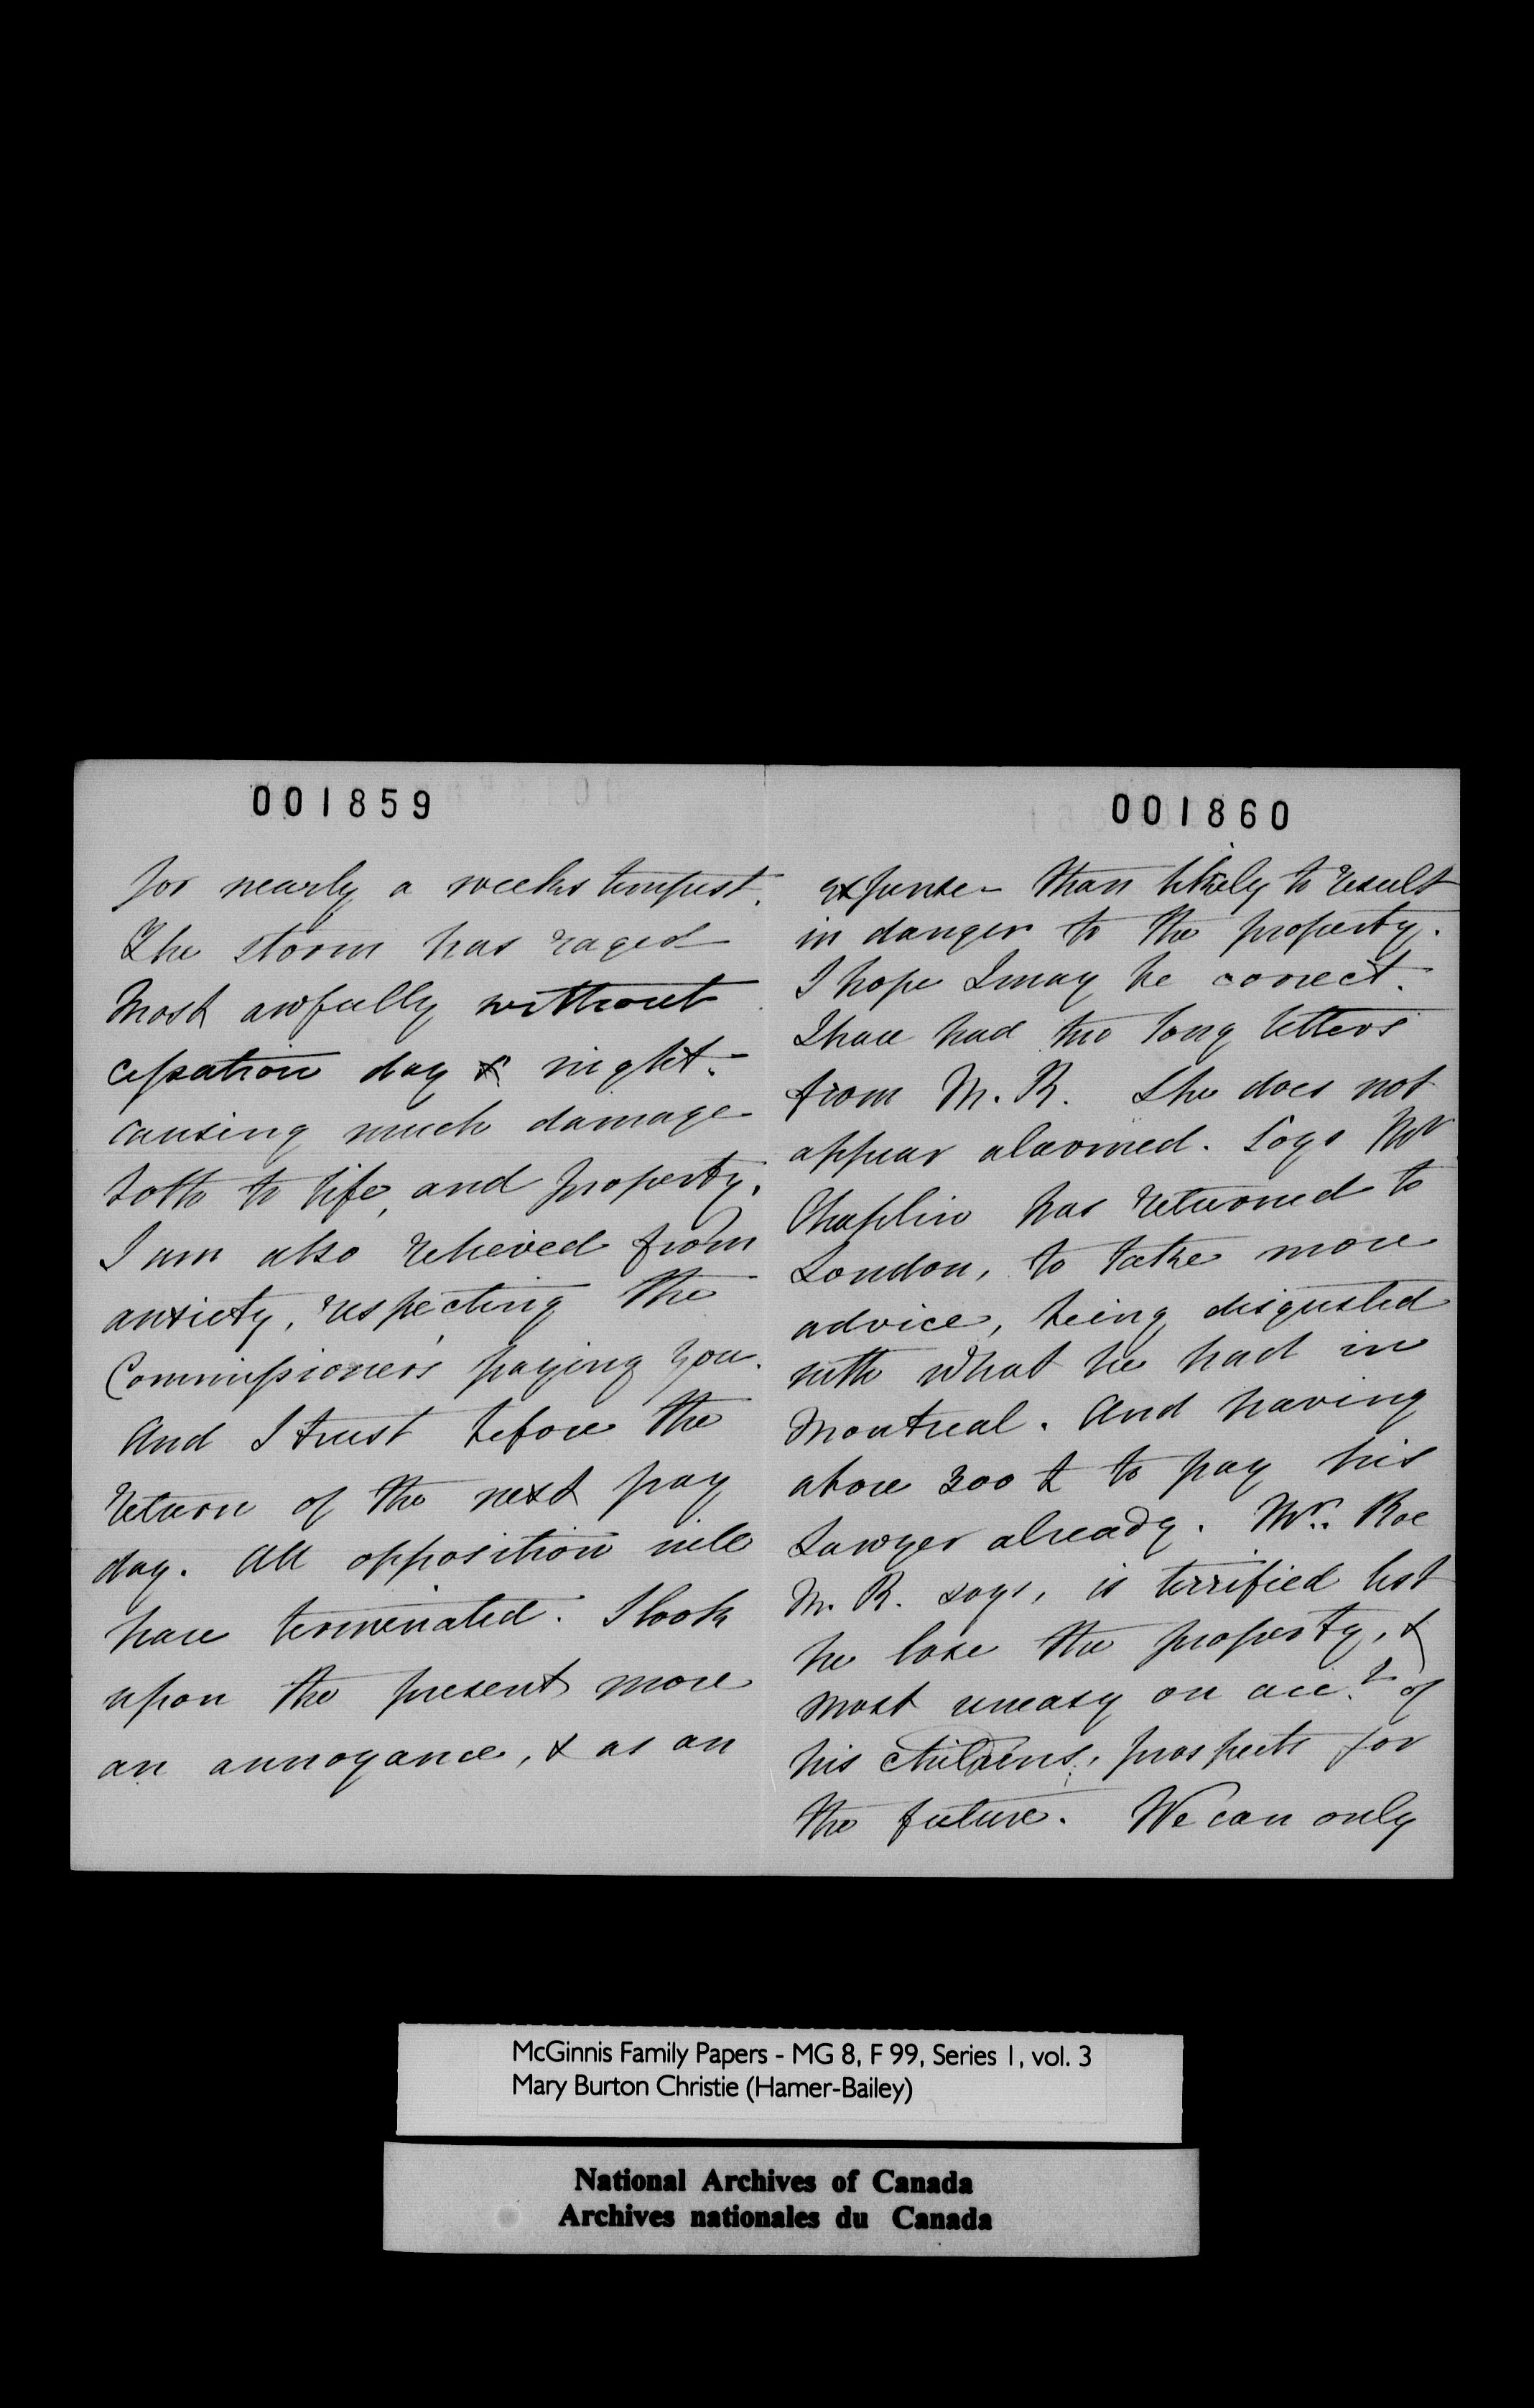 001859
for nearly a weeks tempest.
The storm has raged
most awfully without
cessation day & night.
causing much damage
both to life, and property.
I am also relieved from
anxiety, respecting the
Commissioners paying you.
And I trust before the
return of the next pay
day. All opposition will
have terminated. I look
upon the present more
an annoyance, & as an
001860
expense - than likely to result
in danger to the property.
I hope I may be correct.
I have had two long letters
from M. R. She does not
appear alarmed. Says Mr
Chaplin has returned to
London, to take more
advice, being disgusted
with what he had in
Montreal. And having
above 300 £ to pay his
Lawyer already. Mr. Roe
M. R. says, is terrified lest
he lose the property, &
most uneasy on acct. of
his childrens, prospects for
the future. We can only
McGinnis Family Papers - MG 8, F 99, Series 1, vol. 3
Mary Burton Christie (Hamer-Bailey)
National Archives of Canada
Archives nationales du Canada